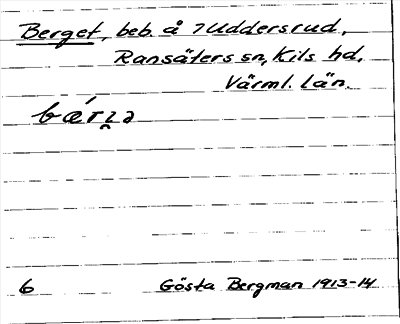 Berget, beb. å 7 Uddersrud,
Ransäters sn, Kils hd,
Värml. län.
6 Gösta Bergman 1913-14